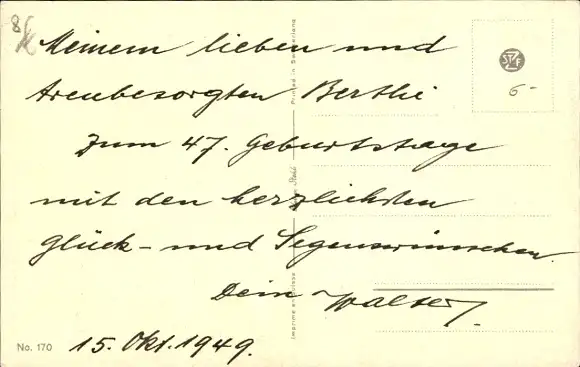 8
Meinem lieben und
treubesorgten Berthi
zum 47. Geburtstage
mit den herzlichsten
Glück- und Segenswünschen.
Dein Walter.
15. Okt. 1949.
No. 170
Printed in Switzerland
Imprimé en Suisse
6-